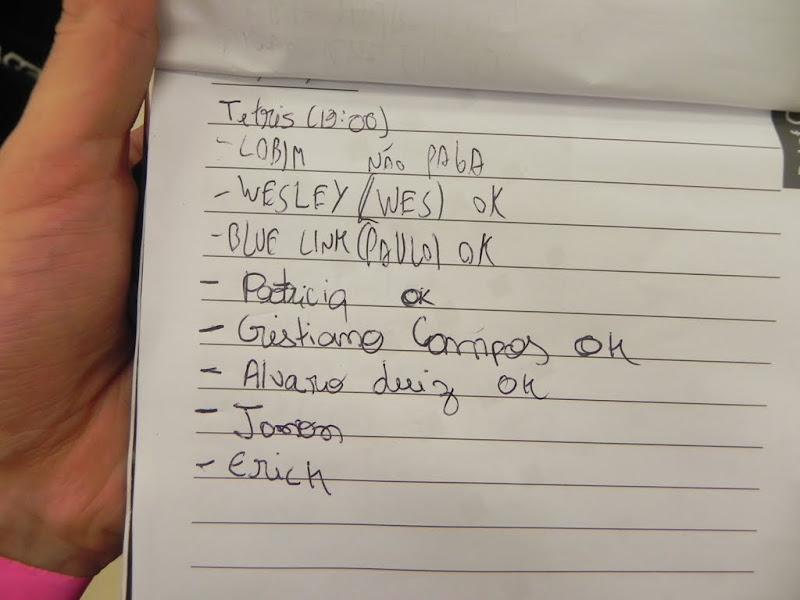 Tetris (19:00)
- LOBIM NÃO PAGA
- WESLEY (WES) OK
- BLUE LINK (PAULO) OK
- Patricia OK
- Cristiano Campos OK
- Alvaro Luiz OK
- Erich